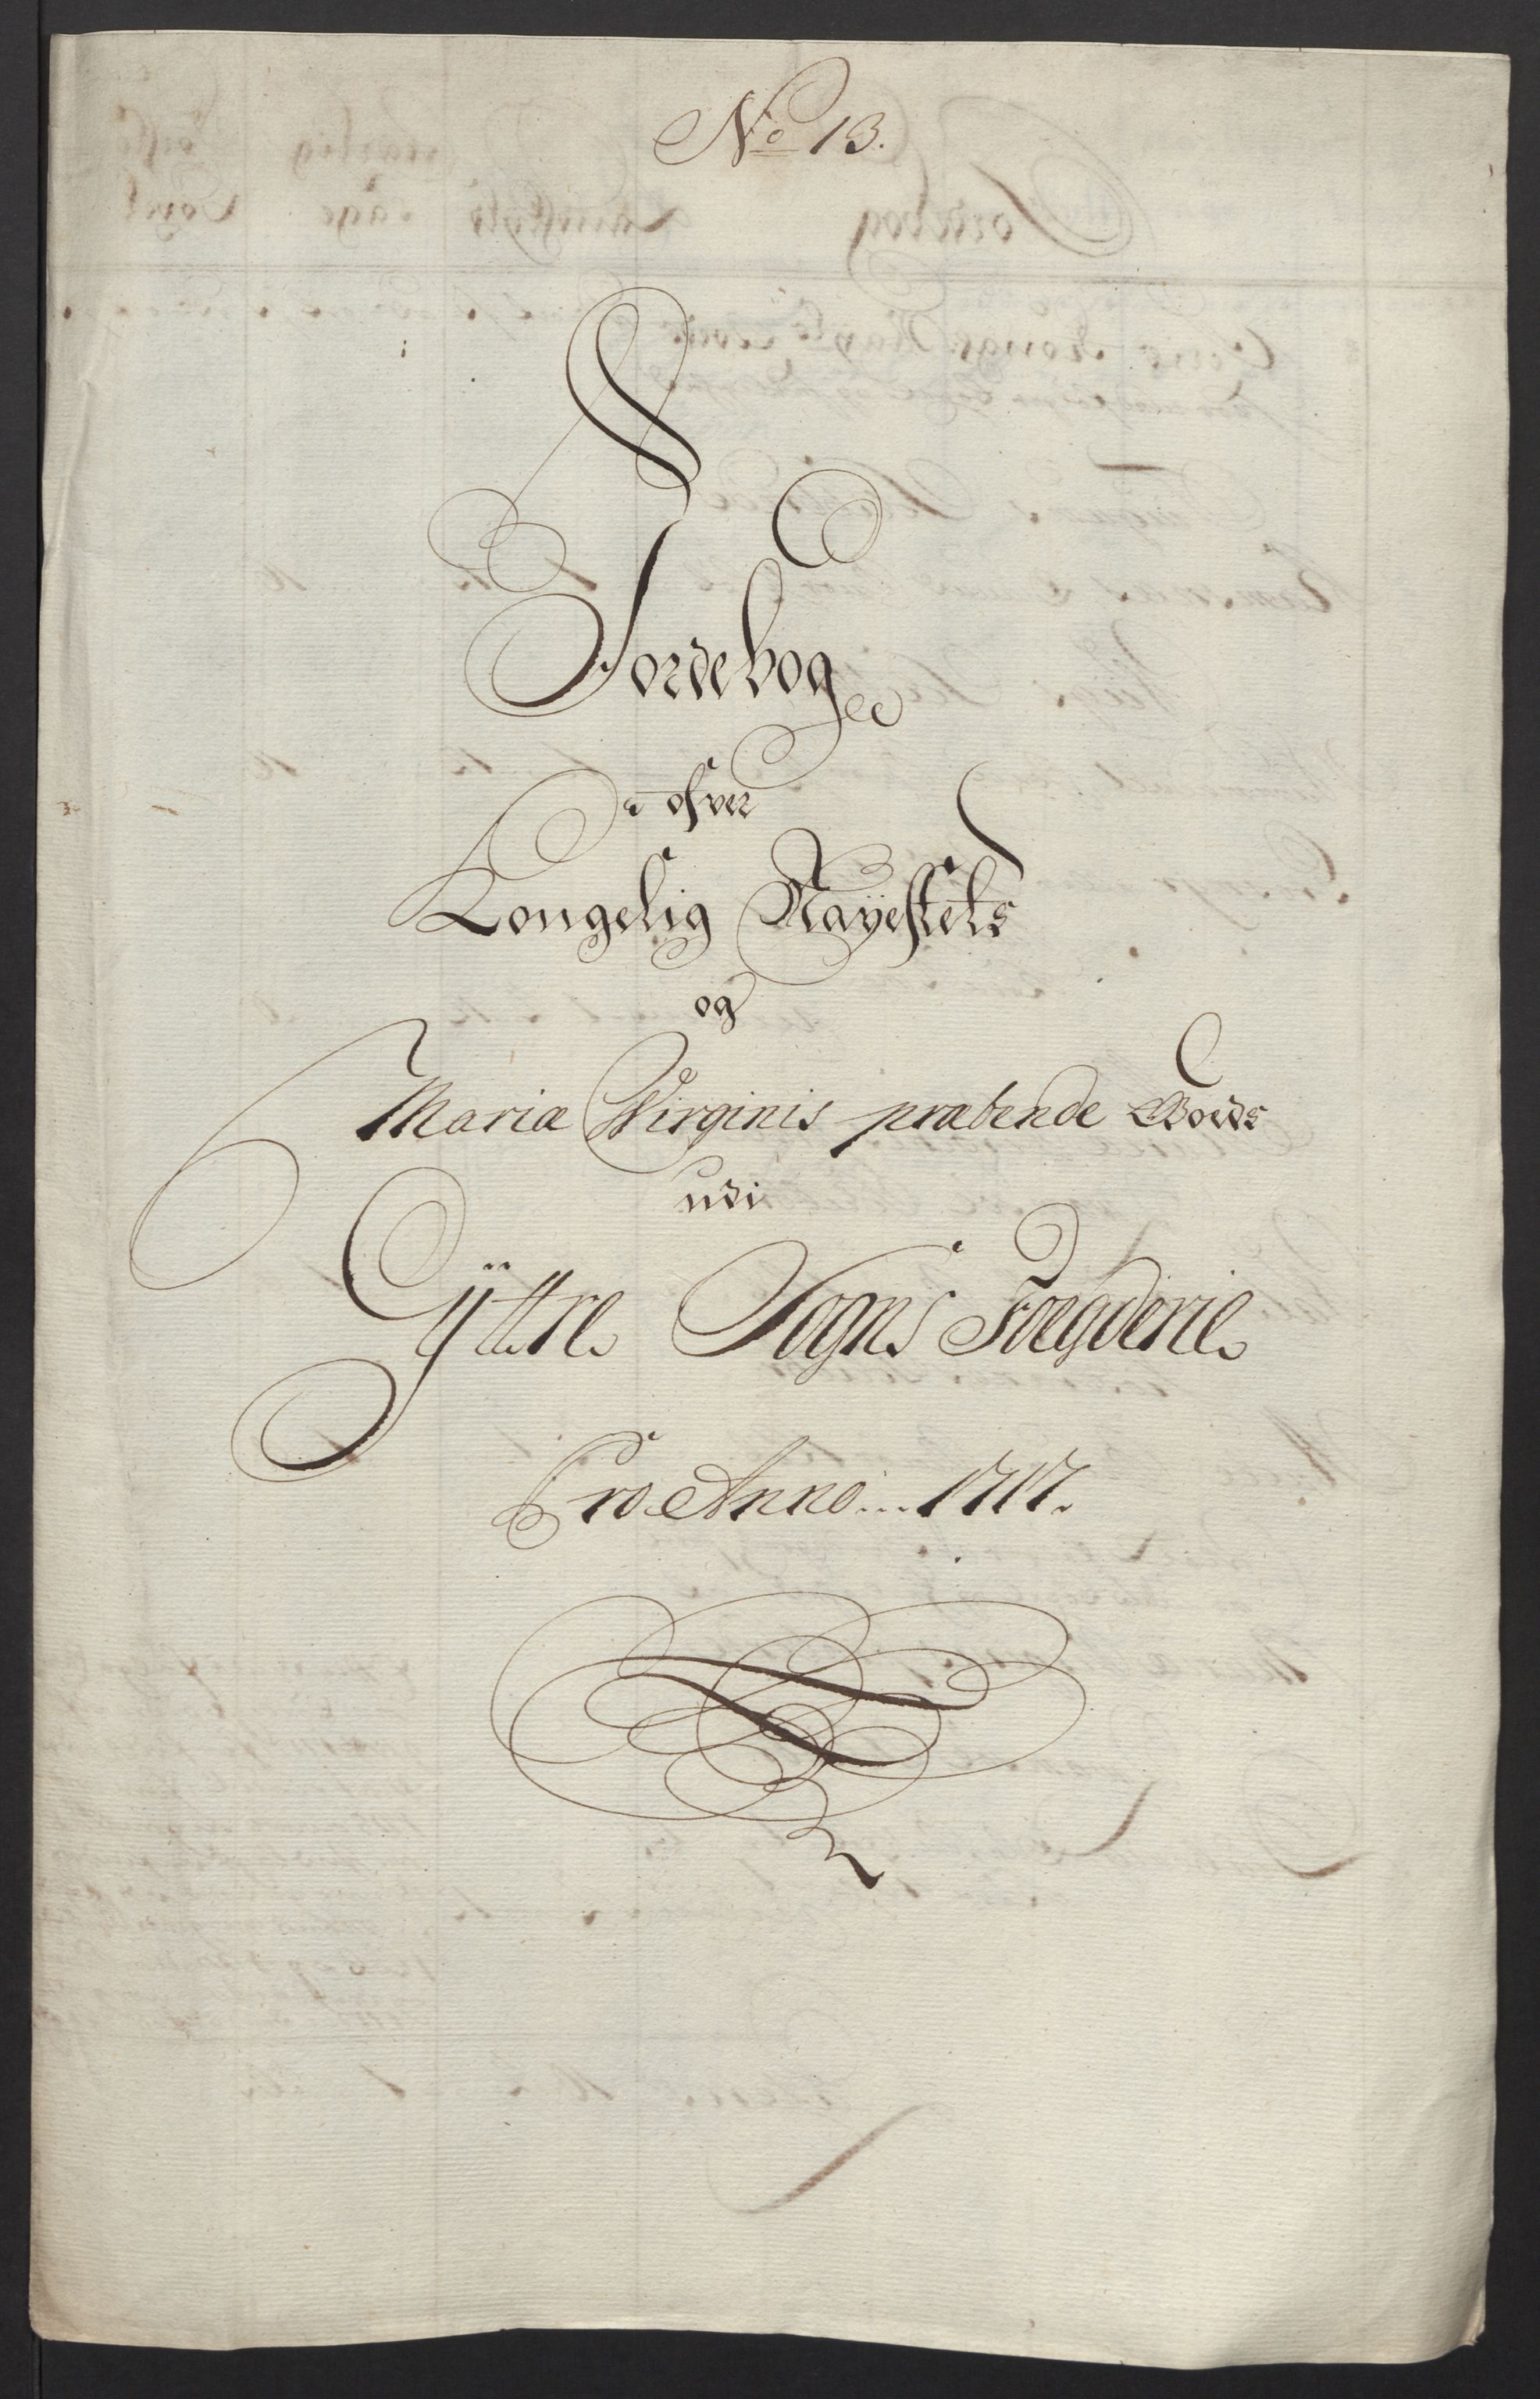 No 13.
Jordebog
ofver
Kongelig Mayestets
og
Mariæ Virginis præbende Goeds
udi
Yttre Sogns Foegderie
Pro Anno...1717.